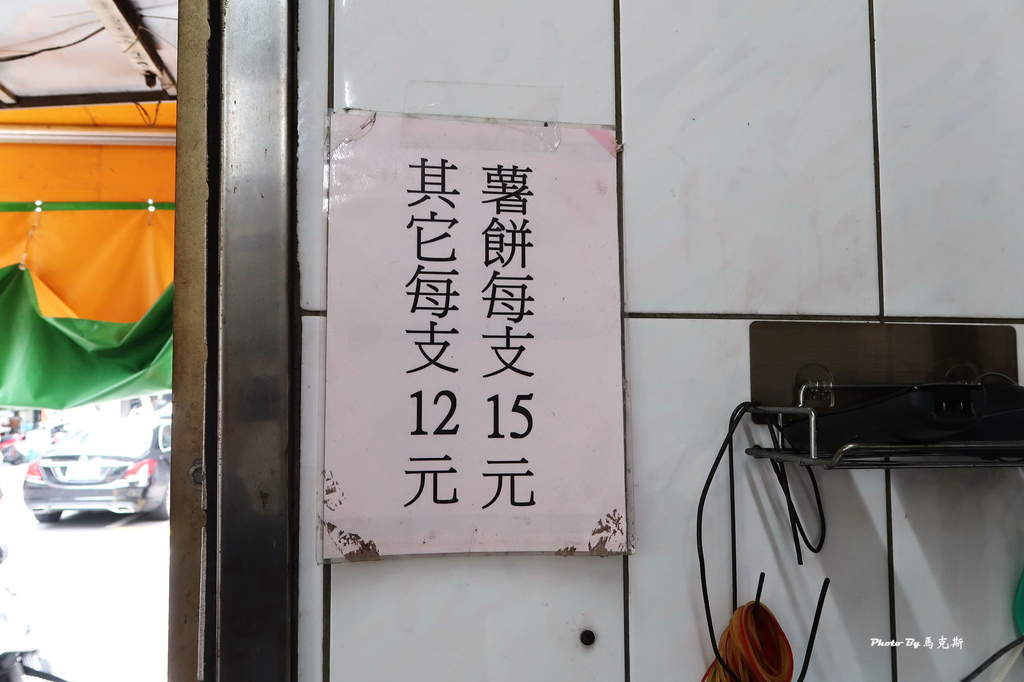 薯餅每支15元
其它每支12元
Photo By 馬克斯